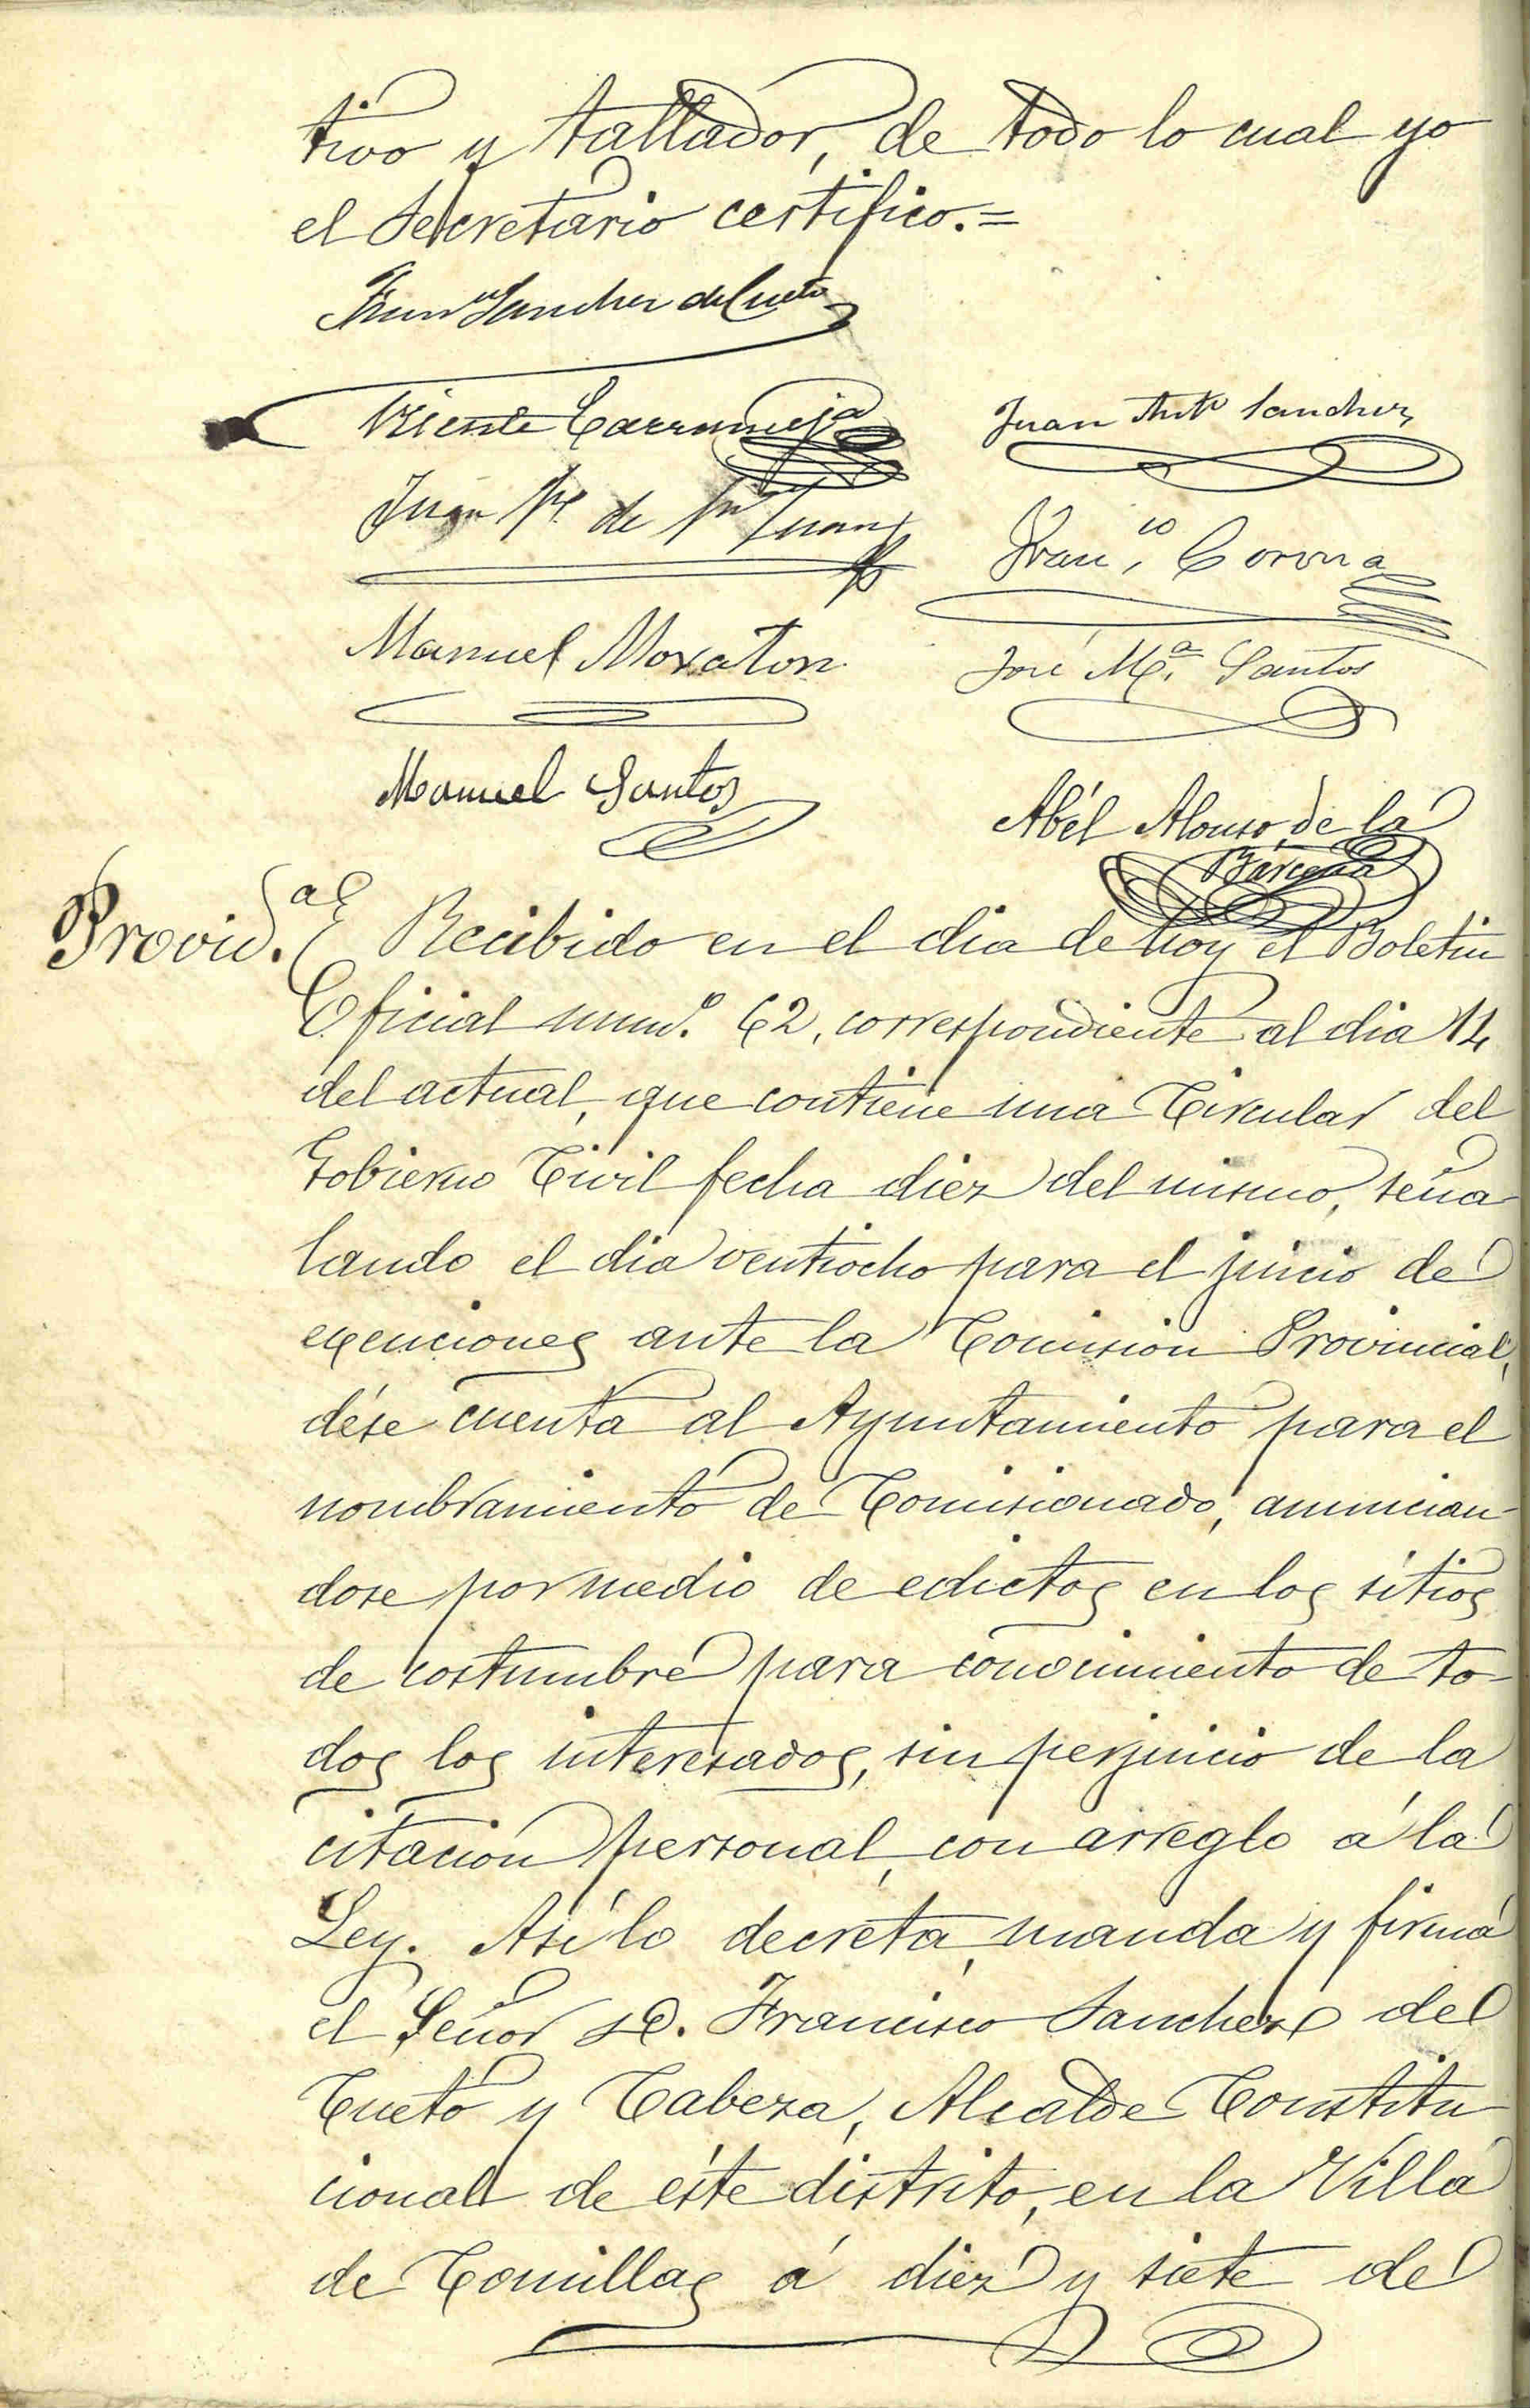 tivo y tallador, de todo lo cual yo
el Secretario certifico.=
Fran.co Sanchez del Cueto
Vicente Juan Ant.o Sanchez
Juan P. de la
Fran.co Corona
Manuel Moraton José M.a Santos
Manuel Santos Abél Alonso de la
Bárcena
Provid.a Recibido en el dia de hoy el Boletin
Oficial num.o 62, correspondiente al dia 14
del actual, que contiene una Circular del
Gobierno Civil fecha diez del mismo, seña
lando el dia ventiocho para el juicio de
exenciones ante la Comision Provincial,
dése cuenta al Ayuntamiento para el
nombramiento de Comisionado, anuncian-
dose por medio de edictos en los sitios
de costumbre para conocimiento de to-
dos los interesados, sin perjuicio de la
citacion personal, con arreglo á la
Ley. Asi lo decreta, manda y firma
el Señor D. Francisco Sanchez del
Cueto y Cabeza, Alcalde Constitu
cional de éste distrito, en la Villa
de Comillas á diez y siete de